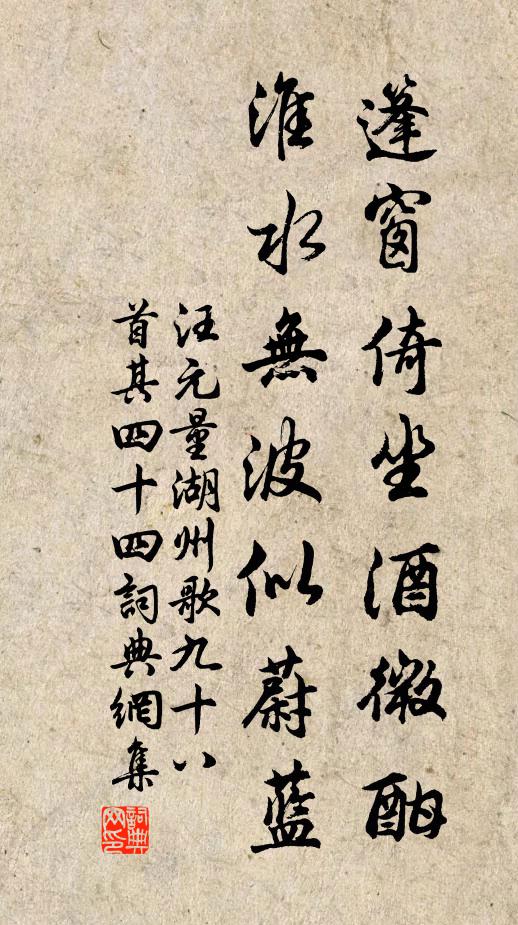 篷窗倚坐酒微酣
淮水無波似蔚藍
汪元量湖州歌九十八
首其四十四詞典網集
詞典
网印